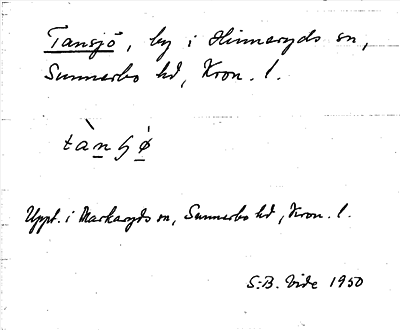 Tansjö, by i Hinneryds sn,
Sunnerbo hd, Kron. l.
tànɧø̀
Uppt. i Markaryds sn, Sunnerbo hd, Kron. l.
S.B. Vide 1950